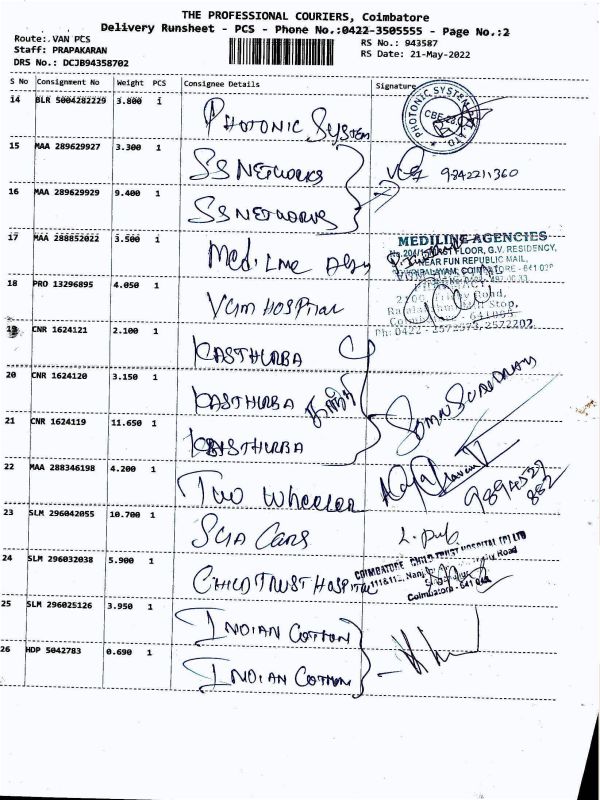 THE PROFESSIONAL COURIERS, Coimbatore
Delivery Runsheet - PCS - Phone No.:0422-3505555 - Page No.:2
Route: VAN PCS
RS No.: 943587
Staff: PRAPAKARAN
RS Date: 21-May-2022
DRS No.: DCJB94358702
S No Consignment No Weight PCS Consignee Details Signature
14 BLR 5004282229 3.800 1 PHOTONIC SYSTEM
PHOTONIC SYSTEM
15 MAA 289629927 3.300 1 SS NETWORKS
9842211360
16 MAA 289629929 9.400 1 SS NETWORKS
17 MAA 288852022 3.500 1 MEDILINE
MEDILINE AGENCIES
FLOOR, G.V. RESIDENCY,
NEAR FUN REPUBLIC MAIL,
COIMBATORE - 641
18 PRO 13296895 4.050 1 VGM HOSPITAL
Road,
Stop,
Ph: 0422 - 2572202
19 CNR 1624121 2.100 1 KASTHURBA
20 CNR 1624120 3.150 1 KASTHURBA
21 CNR 1624119 11.650 1 KASTHURBA
22 MAA 288346198 4.200 1 TWO WHEELER
23 SLM 296042055 10.700 1 CARS
24 SLM 296032038 5.900 1 CHILD TRUST HOSPITAL
COIMBATORE CHILD TRUST HOSPITAL (P) LTD
Road
Coimbatore - 641
25 SLM 296025126 3.950 1 INDIAN COTTON
26 HDP 5042783 0.690 1 INDIAN COTTON